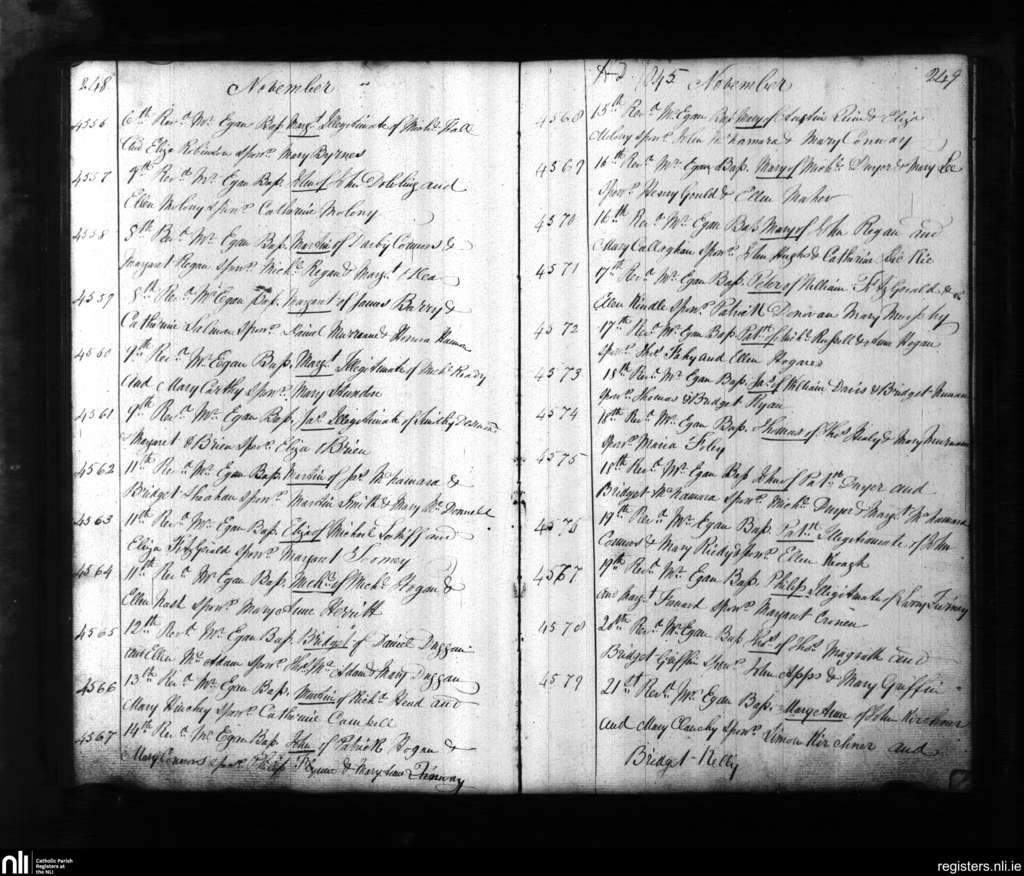 248
November
4556 6th Revd Mr Egan Bapd Margt Illegitimate of Michl Hall
And Eliza Robinson Sponr Mary Byrnes
4557 Revd Mr Egan Bapd John of John Dobling and
Ellen Molony Sponr Catharine Molony
4558 8th Revd Mr Egan Bapd Martin of Darby Connors &
Margaret Regan Sponr Michl Regan & Margt
4559 8th Revd Mr Egan Bapd Margaret of James Barry &
Catharine Salmon Sponr Daniel &
4560 9th Revd Mr Egan Bapd Margt Illegitimate of Michl Ready
And Mary Carthy Sponr Mary
4561 9th Revd Mr Egan Bapd Jas Illegitimate of Timothy
Margaret O Brien Sponr Eliza O Brien
4562 11th Revd Mr Egan Bapd Martin of Jas McNamara &
Bridget Sheahan Sponr Martin Smith & Mary McDonnell
4563 11th Revd Mr Egan Bapd Eliza of Michael and
Eliza FitzGerald Sponr Margaret
4564 11th Revd Mr Egan Bapd Michl of Michl Hogan &
Ellen Nash Sponr Mary Anne
4565 12th Revd Mr Egan Bapd Bridget of Daniel Duggan
and Ellen McAdam Sponr Thos McAdam & Mary Duggan
4566 13th Revd Mr Egan Bapd Martin of Richd Head and
Mary Sponr Catharine Cambell
4567 14th Revd Mr Egan Bapd John of Patrick Hogan &
Mary Connors Sponr Philip & Mary Anne
AD 1845 November
249
4568 15th Revd Mr Egan Bapd Mary of Austin and Eliza
Sponr John McNamara & Mary Conway
4569 16th Revd Mr Egan Bapd Mary of Michl Dwyer & Mary Lee
Sponr Henry Gould & Ellen Maher
4570 16th Revd Mr Egan Bapd Mary of John Rogan and
Mary Calloghan Sponr John Hughes & Catharine
4571 17th Revd Mr Egan Bapd Peter of William FitzGerald &
Ellen Sponr Patrick Donovan Mary
4572 17th Revd Mr Egan Bapd Patk of Michl Russell & Hogan
Sponr Thos and Ellen Hogan
4573 18th Revd Mr Egan Bapd Jas of William Davis & Bridget
Sponr Thomas & Bridget Ryan
4574 18th Revd Mr Egan Bapd Thomas of Thos Healy & Mary
Sponr Maria Foley
4575 18th Revd Mr Egan Bapd John of Patk Dwyer and
Bridget McNamara Sponr Michl Dwyer & Margt McNamara
4576 19th Revd Mr Egan Bapd Patk Illegitimate of John
Connors & Mary Sponr Ellen Keogh
4567 19th Revd Mr Egan Bapd Philip Illegitimate of
and Margt Sponr Margaret Cronin
4578 20th Revd Mr Egan Bapd Thos of Thos Magrath and
Bridget Griffin Sponr John Apps & Mary Griffin
4579 21st Revd Mr Egan Bapd Mary Anne of John Kirchner
and Mary Clanchy Sponr Simon Kirchner and
Bridget Kelly
nli
Catholic Parish
Registers at
the NLI
registers.nli.ie